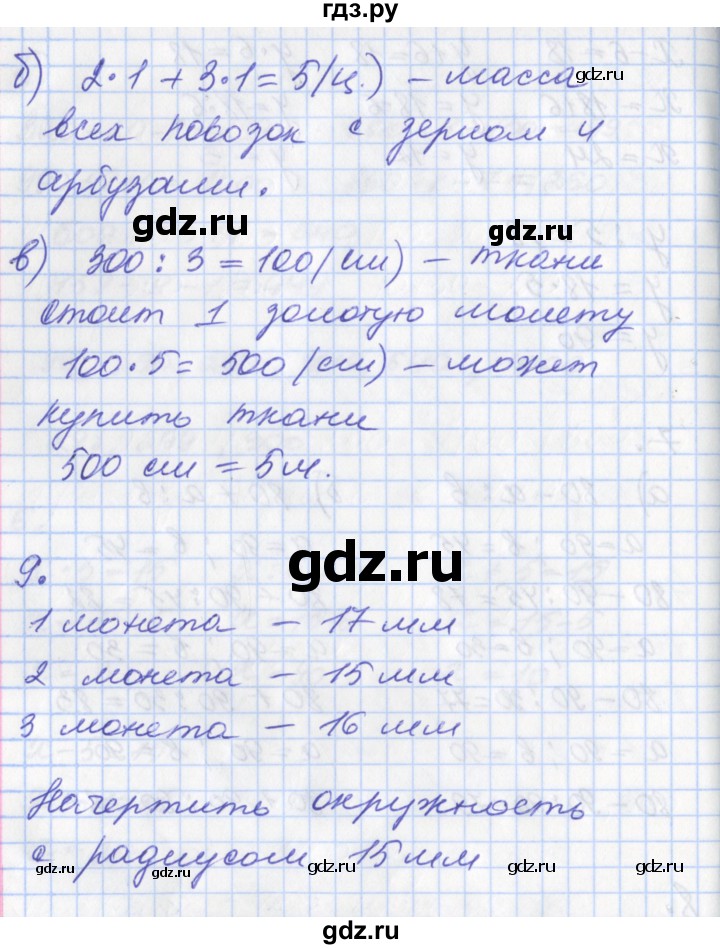 гдз.ру
б) 2·1 + 3·1 = 5 (ц.) – масса
gdz.ru
всех повозок с зерном и
арбузами.
gdz.ru
gdz.ru
в) 300 : 3 = 100 (см) – ткани
стоит 1 золотую монету
100·5 = 500 (см) – может
купить ткани
500 см = 5 м.
gdz.ru
9.
1 монета – 17 мм
2 монета – 15 мм
3 монета – 16 мм
Начертить окружность
с радиусом 15 мм
gdz.ru
gdz.ru